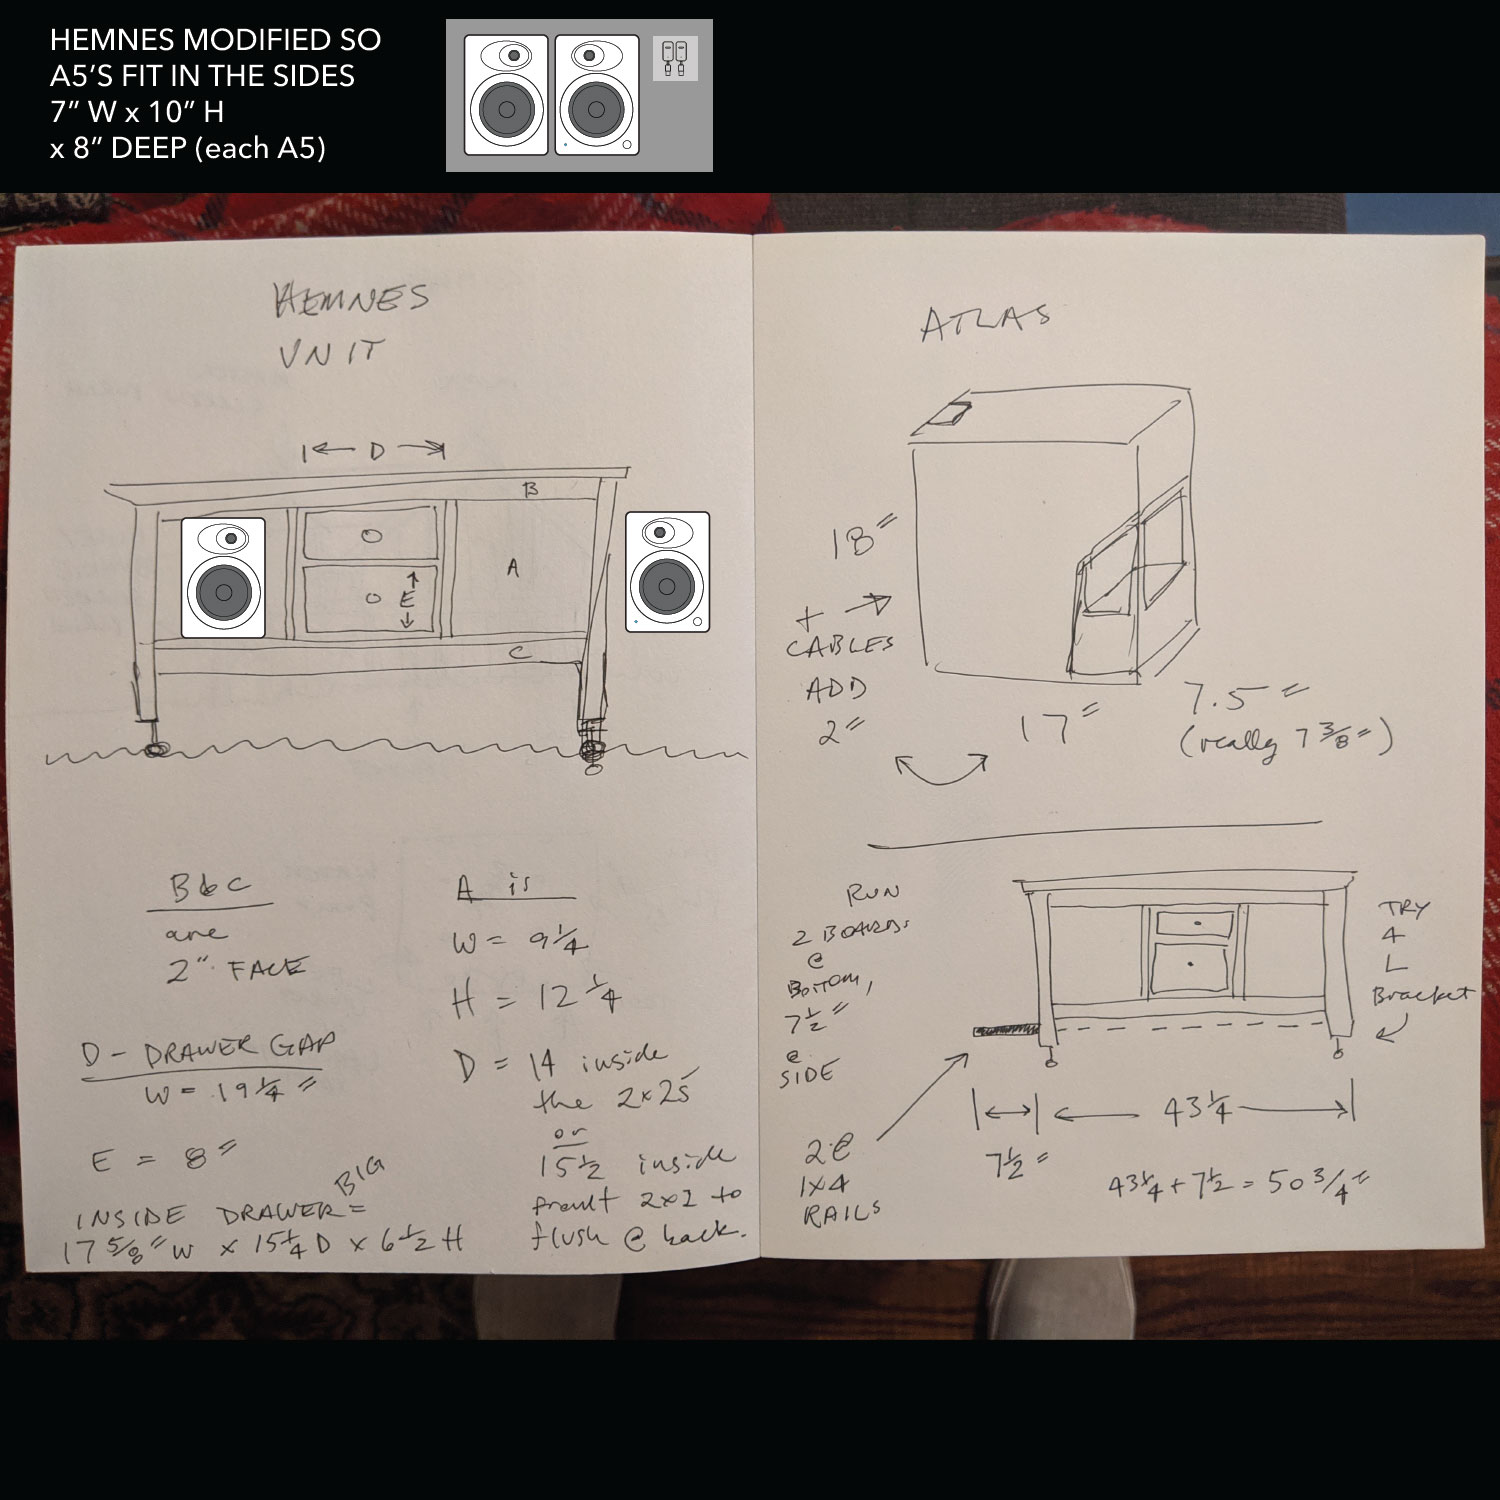 HEMNES MODIFIED SO
A5'S FIT IN THE SIDES
7” W x 10” H
x 8” DEEP (each A5)
HEMNES
UNIT
D
B
A
E
C
B & C
are
2" FACE
D - DRAWER GAP
W = 19 1/4 "
E = 8"
INSIDE DRAWER =
BIG
17 5/8" W x 15 1/4 D x 6 1/2 H
A is
W = 9 1/4
H = 12 1/4
D = 14 inside
the 2x2s
or
15 1/2 inside
front 2x2 to
flush @ back.
ATLAS
18"
+
CABLES
ADD
2"
17"
7.5"
(really 7 3/8")
RUN
2 BOARDS
@
BOTTOM,
7 1/2"
@
SIDE
2@
1x4
RAILS
TRY
4
L
Bracket
43 1/4
7 1/2"
43 1/4 + 7 1/2 = 50 3/4"